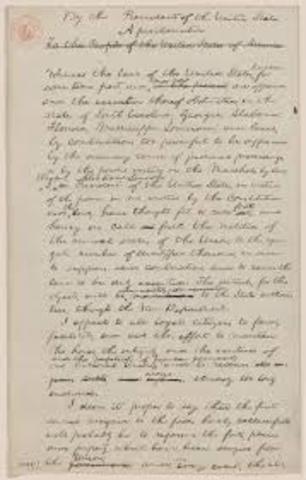 By the President of the United States
A proclamation
To the People of the United States of
Whereas the laws of the United States for
some time past and are opposed
and the execution thereof obstructed in the
State of South Carolina, Georgia, Alabama
Florida, Mississippi Louisiana and Texas,
by combinations too powerful to be suppressed
by the ordinary course of judicial proceedings
or by the powers vested in the Marshals by law
President of the United States, in virtue
of the power in me vested by the Constitution
and laws, have thought fit to call
forth the militia of
the several states of the Union, to the aggre-
gate number of seventy-five thousand, in order
to suppress said combinations and to cause the
laws to be duly executed. The details, for this
object, will be to the State authori-
ties through the War Department.
I appeal to all loyal citizens to favor,
facilitate and aid this effort to maintain
the honor, the integrity, and the existence of
our National Union, and to redress
wrongs already too long
endured.
I deem it proper to say that the first
service assigned to the forces hereby called forth
will probably be to repossess the forts, places
and property which have been seized from
the Union; and in every event, the